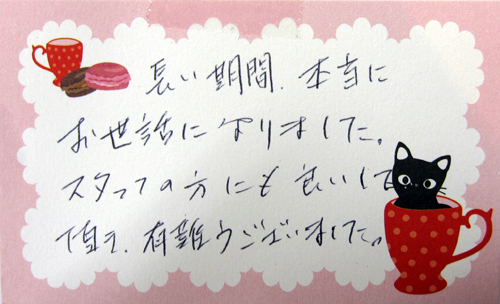 長い期間、本当に
お世話になりました。
スタッフの方にも良いして
頂き、有難うございました。